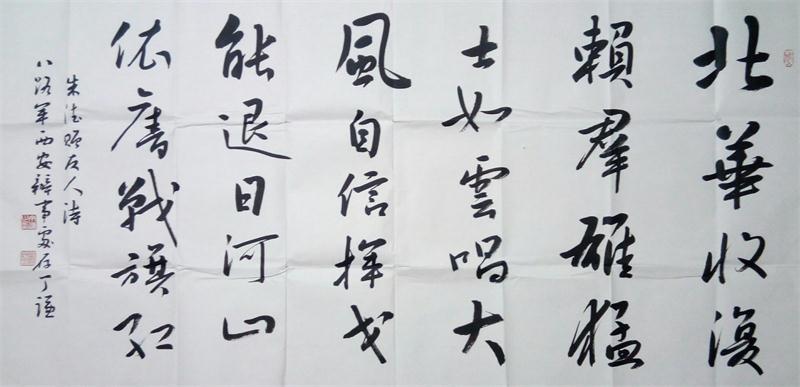 北華收復
賴羣雄猛
士如雲唱大
風自信揮戈
能退日河山
依舊戰旗紅
朱德贈友人詩
八路軍西安辦事處存丁謙